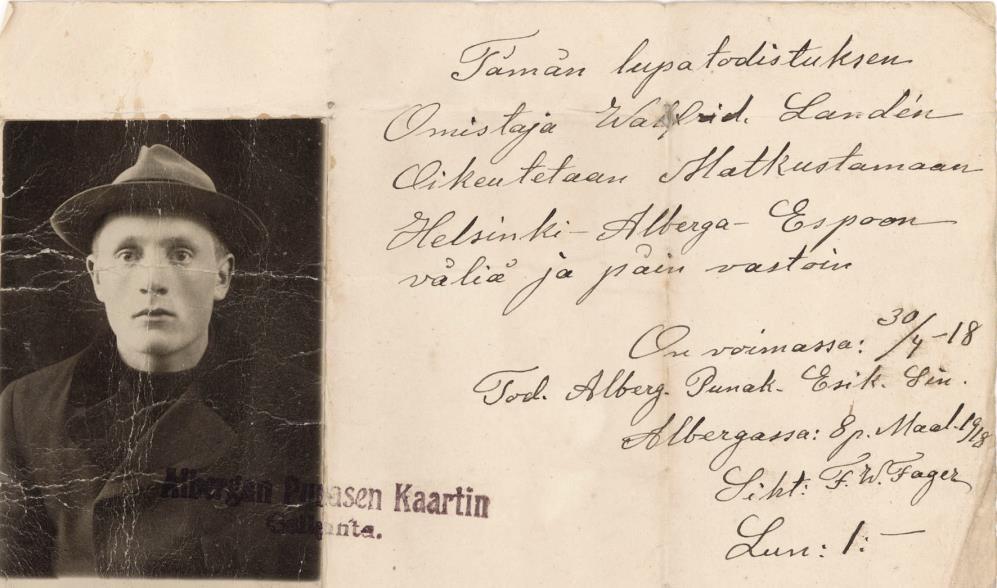 Tämän lupatodistuksen
Omistaja Walfrid. Landén
Oikeutetaan Matkustamaan
Helsinki - Alberga - Espoon
väliä ja päin vastoin
On voimassa: 30/4 - 18
Tod. Alberg. Punak. Esik. Sin.
Albergassa: 8 p. Maal. 1918
Siht: F. W. Fager
Lun: 1: -
Albergan Punasen Kaartin